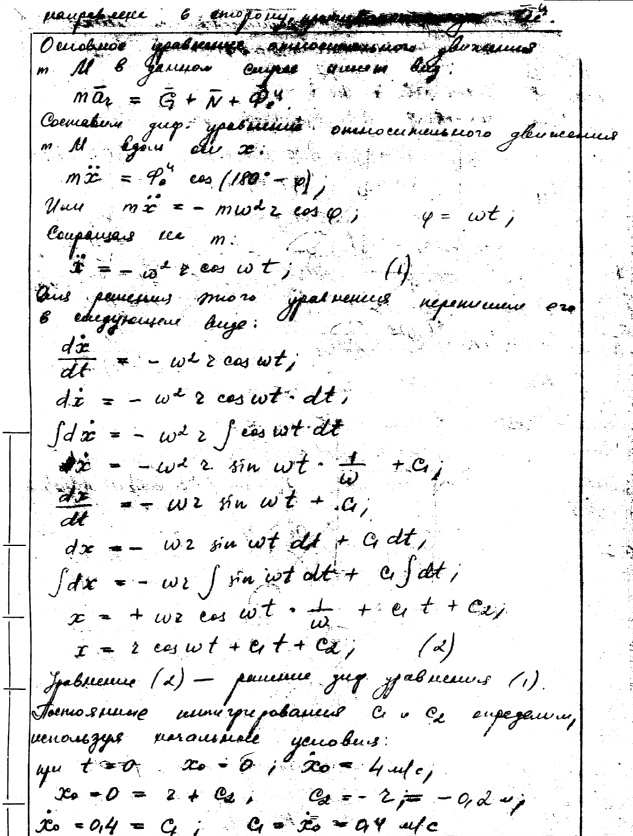 направлена в сторону,
Основное уравнение относительного движения
т М в данном случае имеет вид:
mā₂ = Ḡ + N̄ + Φ̄ₑᵘ
Составим диф. уравнение относительного движения
т М вдоль оси x.
mẍ = Φₑᵘ cos (180° - φ);
Или mẍ = - mω² r cos φ; φ = ωt;
Сокращая на m:
ẍ = - ω² r cos ωt; (1)
Для решения этого уравнения перепишем его
в следующем виде:
dẋ/dt = - ω² r cos ωt;
dẋ = - ω² r cos ωt · dt;
∫dẋ = - ω² r ∫ cos ωt · dt
ẋ = - ω² r sin ωt · 1/ω + C₁;
dx/dt = - ωr sin ωt + C₁;
dx = - ωr sin ωt dt + C₁ dt;
∫dx = - ωr ∫ sin ωt dt + C₁ ∫dt;
x = + ωr cos ωt · 1/ω + C₁ t + C₂;
x = r cos ωt + C₁ t + C₂; (2)
Уравнение (2) — решение диф. уравнения (1).
Постоянные интегрирования C₁ и C₂ определим,
используя начальные условия:
при t = 0 x₀ = 0; ẋ₀ = 4 м/с;
x₀ = 0 = r + C₂, C₂ = - r; = - 0,2 м;
ẋ₀ = 0,4 = C₁; C₁ = ẋ₀ = 0,4 м/с